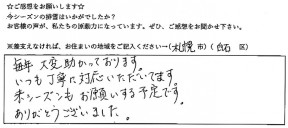 ☆ご感想をお願いします☆
今シーズンの排雪はいかがでしたか？
お客様の声が、私たちの原動力になっています。ぜひ、ご感想をお聞かせ下さい。
※差支えなければ、お住まいの地域をご記入ください→（札幌 市）（白石 区）
毎年 大変助かっております。
いつも丁寧に対応いただいてます。
来シーズンもお願いする予定です。
ありがとうございました。